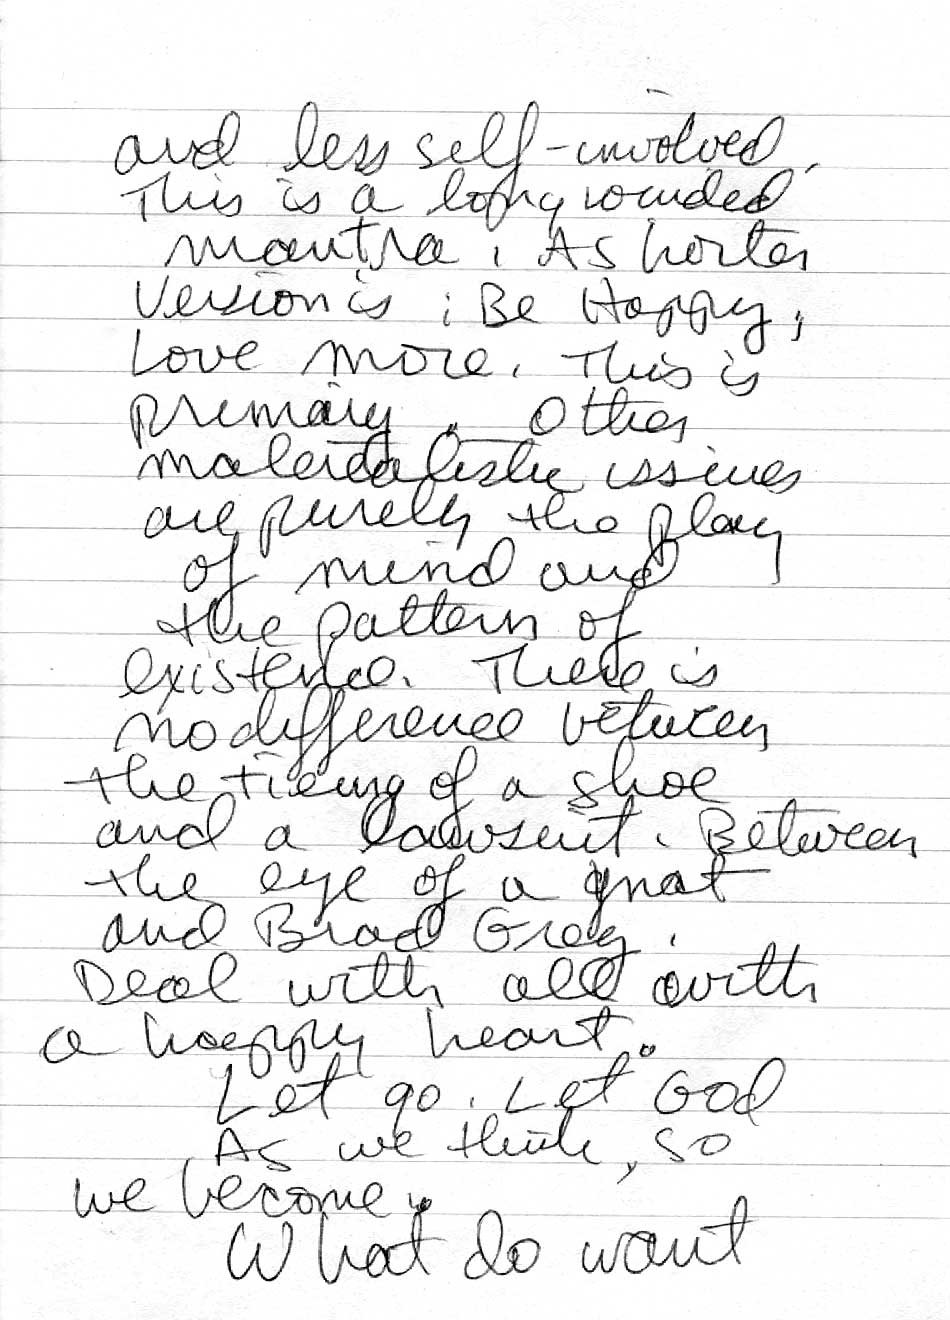 and less self-involved.
This is a long winded
mantra. A shorter
Version is : Be Happy,
Love more. This is
primary. Other
materialistic issues
are purely the play
of mind and
the pattern of
existence. There is
no difference between
the tieing of a shoe
and a lawsuit. Between
the eye of a gnat
and Brad Grey.
Deal with all with
a happy heart.
Let go. Let God
As we think, so
we become.
What do want